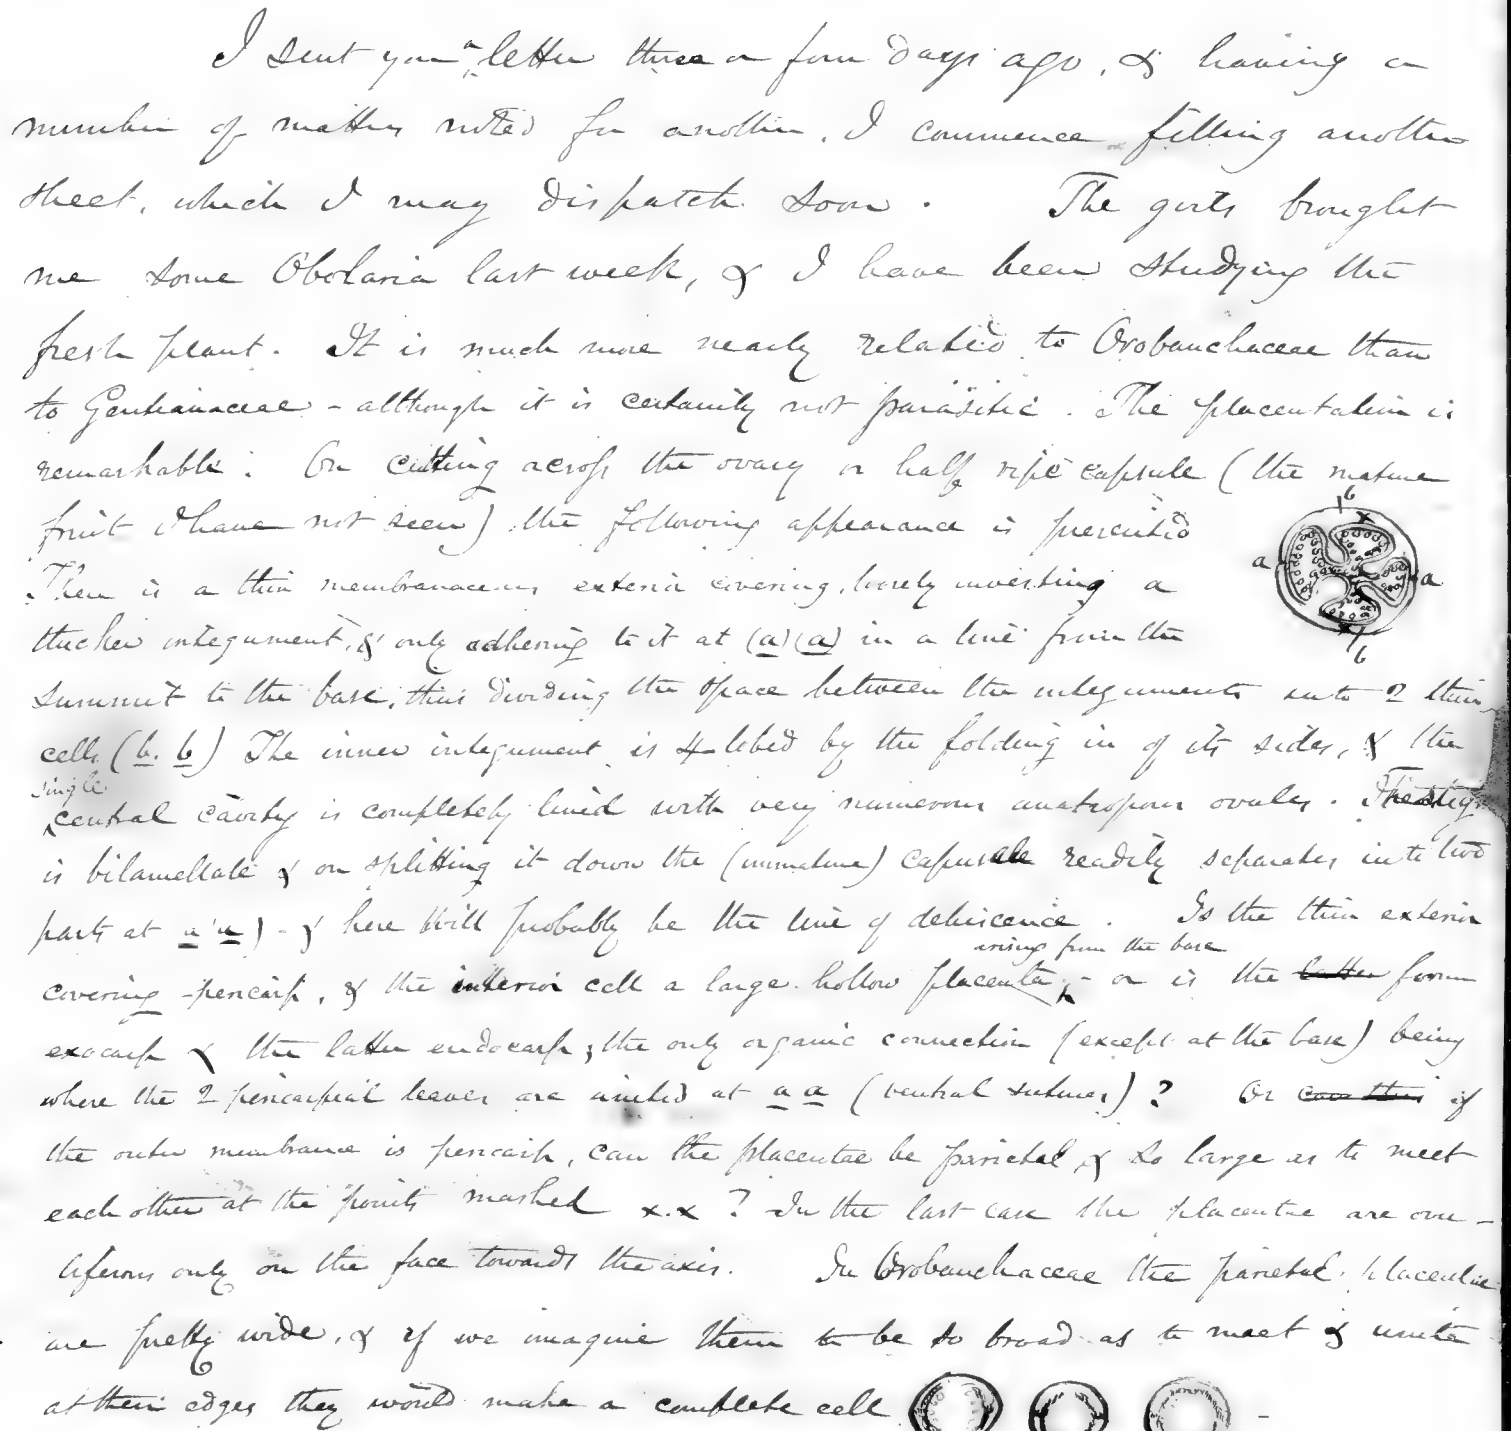 I sent you a letter three or four days ago, & having a
number of matters noted for another, I commence filling another
sheet, which I may dispatch soon. The girls brought
me some Obolaria last week, & I have been studying the
fresh plant. It is much more nearly related to Orobanchaceae than
to Gentianaceae - although it is certainly not parasitic. The placentation is
remarkable. On cutting across the ovary or half ripe capsule (the mature
fruit I have not seen) the following appearance is presented
There is a thin membranaceous exterior covering, loosely investing a
thicker integument, & only adhering to it at (a) (a) in a line from the
summit to the base, thus dividing the space between the integuments into 2 thin
cells (b. b) The inner integument is 4-lobed by the folding in of its sides, & the
single
central cavity is completely lined with very numerous anatropous ovules. The stigma
is bilamellate & on splitting it down the (immature) capsule readily separates into two
parts at a a) - & here will probably be the line of dehiscence. Is the thin exterior
arising from the base
covering pericarp, & the interior cell a large hollow placenta, - or is the latter form
exocarp & the latter endocarp; the only organic connection (except at the base) being
where the 2 pericarpial leaves are united at a a (ventral sutures)? Or can this if
the outer membrane is pericarp, can the placentae be parietal, & so large as to meet
each other at the points marked x.x? In the last case the placentae are ovu-
liferous only on the face towards the axis. In Orobanchaceae the parietal placentae
are pretty wide, & if we imagine them to be so broad as to meet & unite
at their edges they would make a complete cell
b
a
a
b